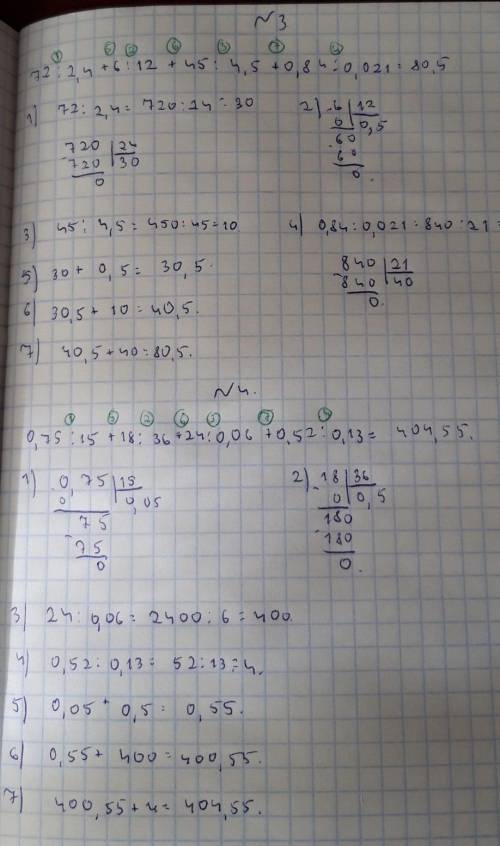 №3
① ⑤ ② ⑥ ③ ⑦ ④
72 : 2,4 + 6 : 12 + 45 : 4,5 + 0,84 : 0,021 = 80,5
1) 72 : 2,4 = 720 : 24 = 30
720 | 24
- 720 | 30
0
2) - 6 | 12
0 | 0,5
- 60
60
0.
3) 45 : 4,5 = 450 : 45 = 10
4) 0,84 : 0,021 = 840 : 21 =
- 840 | 21
840 | 40
0.
5) 30 + 0,5 = 30,5.
6) 30,5 + 10 = 40,5.
7) 40,5 + 40 = 80,5.
№4.
① ⑤ ② ⑥ ③ ⑦ ④
0,75 : 15 + 18 : 36 + 24 : 0,06 + 0,52 : 0,13 = 404,55.
1) - 0,75 | 15
0 | 0,05
75
- 75
0
2) - 18 | 36
0 | 0,5
180
- 180
0.
3) 24 : 0,06 = 2400 : 6 = 400.
4) 0,52 : 0,13 = 52 : 13 = 4.
5) 0,05 + 0,5 = 0,55.
6) 0,55 + 400 = 400,55.
7) 400,55 + 4 = 404,55.